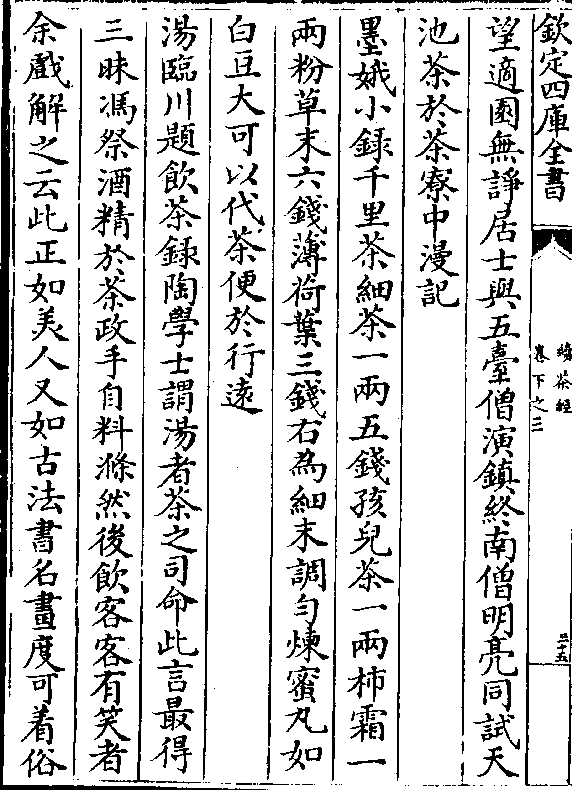 欽定四庫全書
續茶經
卷下之三
三十五
望適園無諍居士與五臺僧演鎮終南僧明亮同試天
池茶於茶寮中漫記
墨娥小錄千里茶細茶一兩五錢孩兒茶一兩柿霜一
兩粉草末六錢薄荷葉三錢右為細末調勻煉蜜丸如
白豆大可以代茶便於行遠
湯臨川題飲茶録陶學士謂湯者茶之司命此言最得
三昧馮祭酒精於茶政手自料滌然後飲客客有笑者
余戲解之云此正如美人又如古法書名畫度可着俗